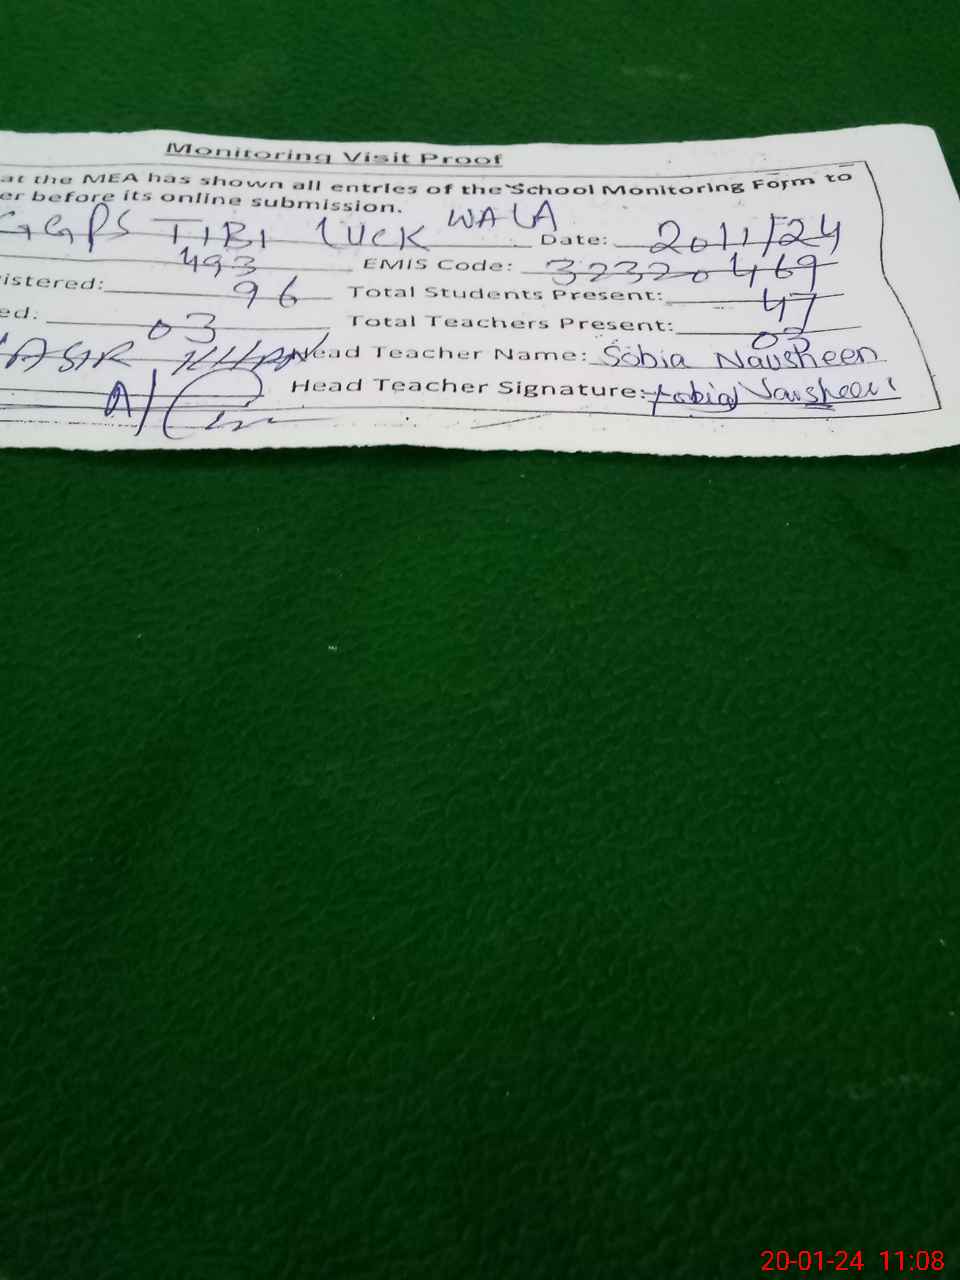 Monitoring Visit Proof
at the MEA has shown all entries of the School Monitoring Form to
er before its online submission.
GGPS TIBI LUCK WALA Date: 20/1/24
493 EMIS Code: 32320469
istered: 96 Total Students Present: 47
ed: 03 Total Teachers Present: 03
ASIR KHAN Head Teacher Name: Sobia Nausheen
Head Teacher Signature: Sobia Nausheen
20-01-24 11:08